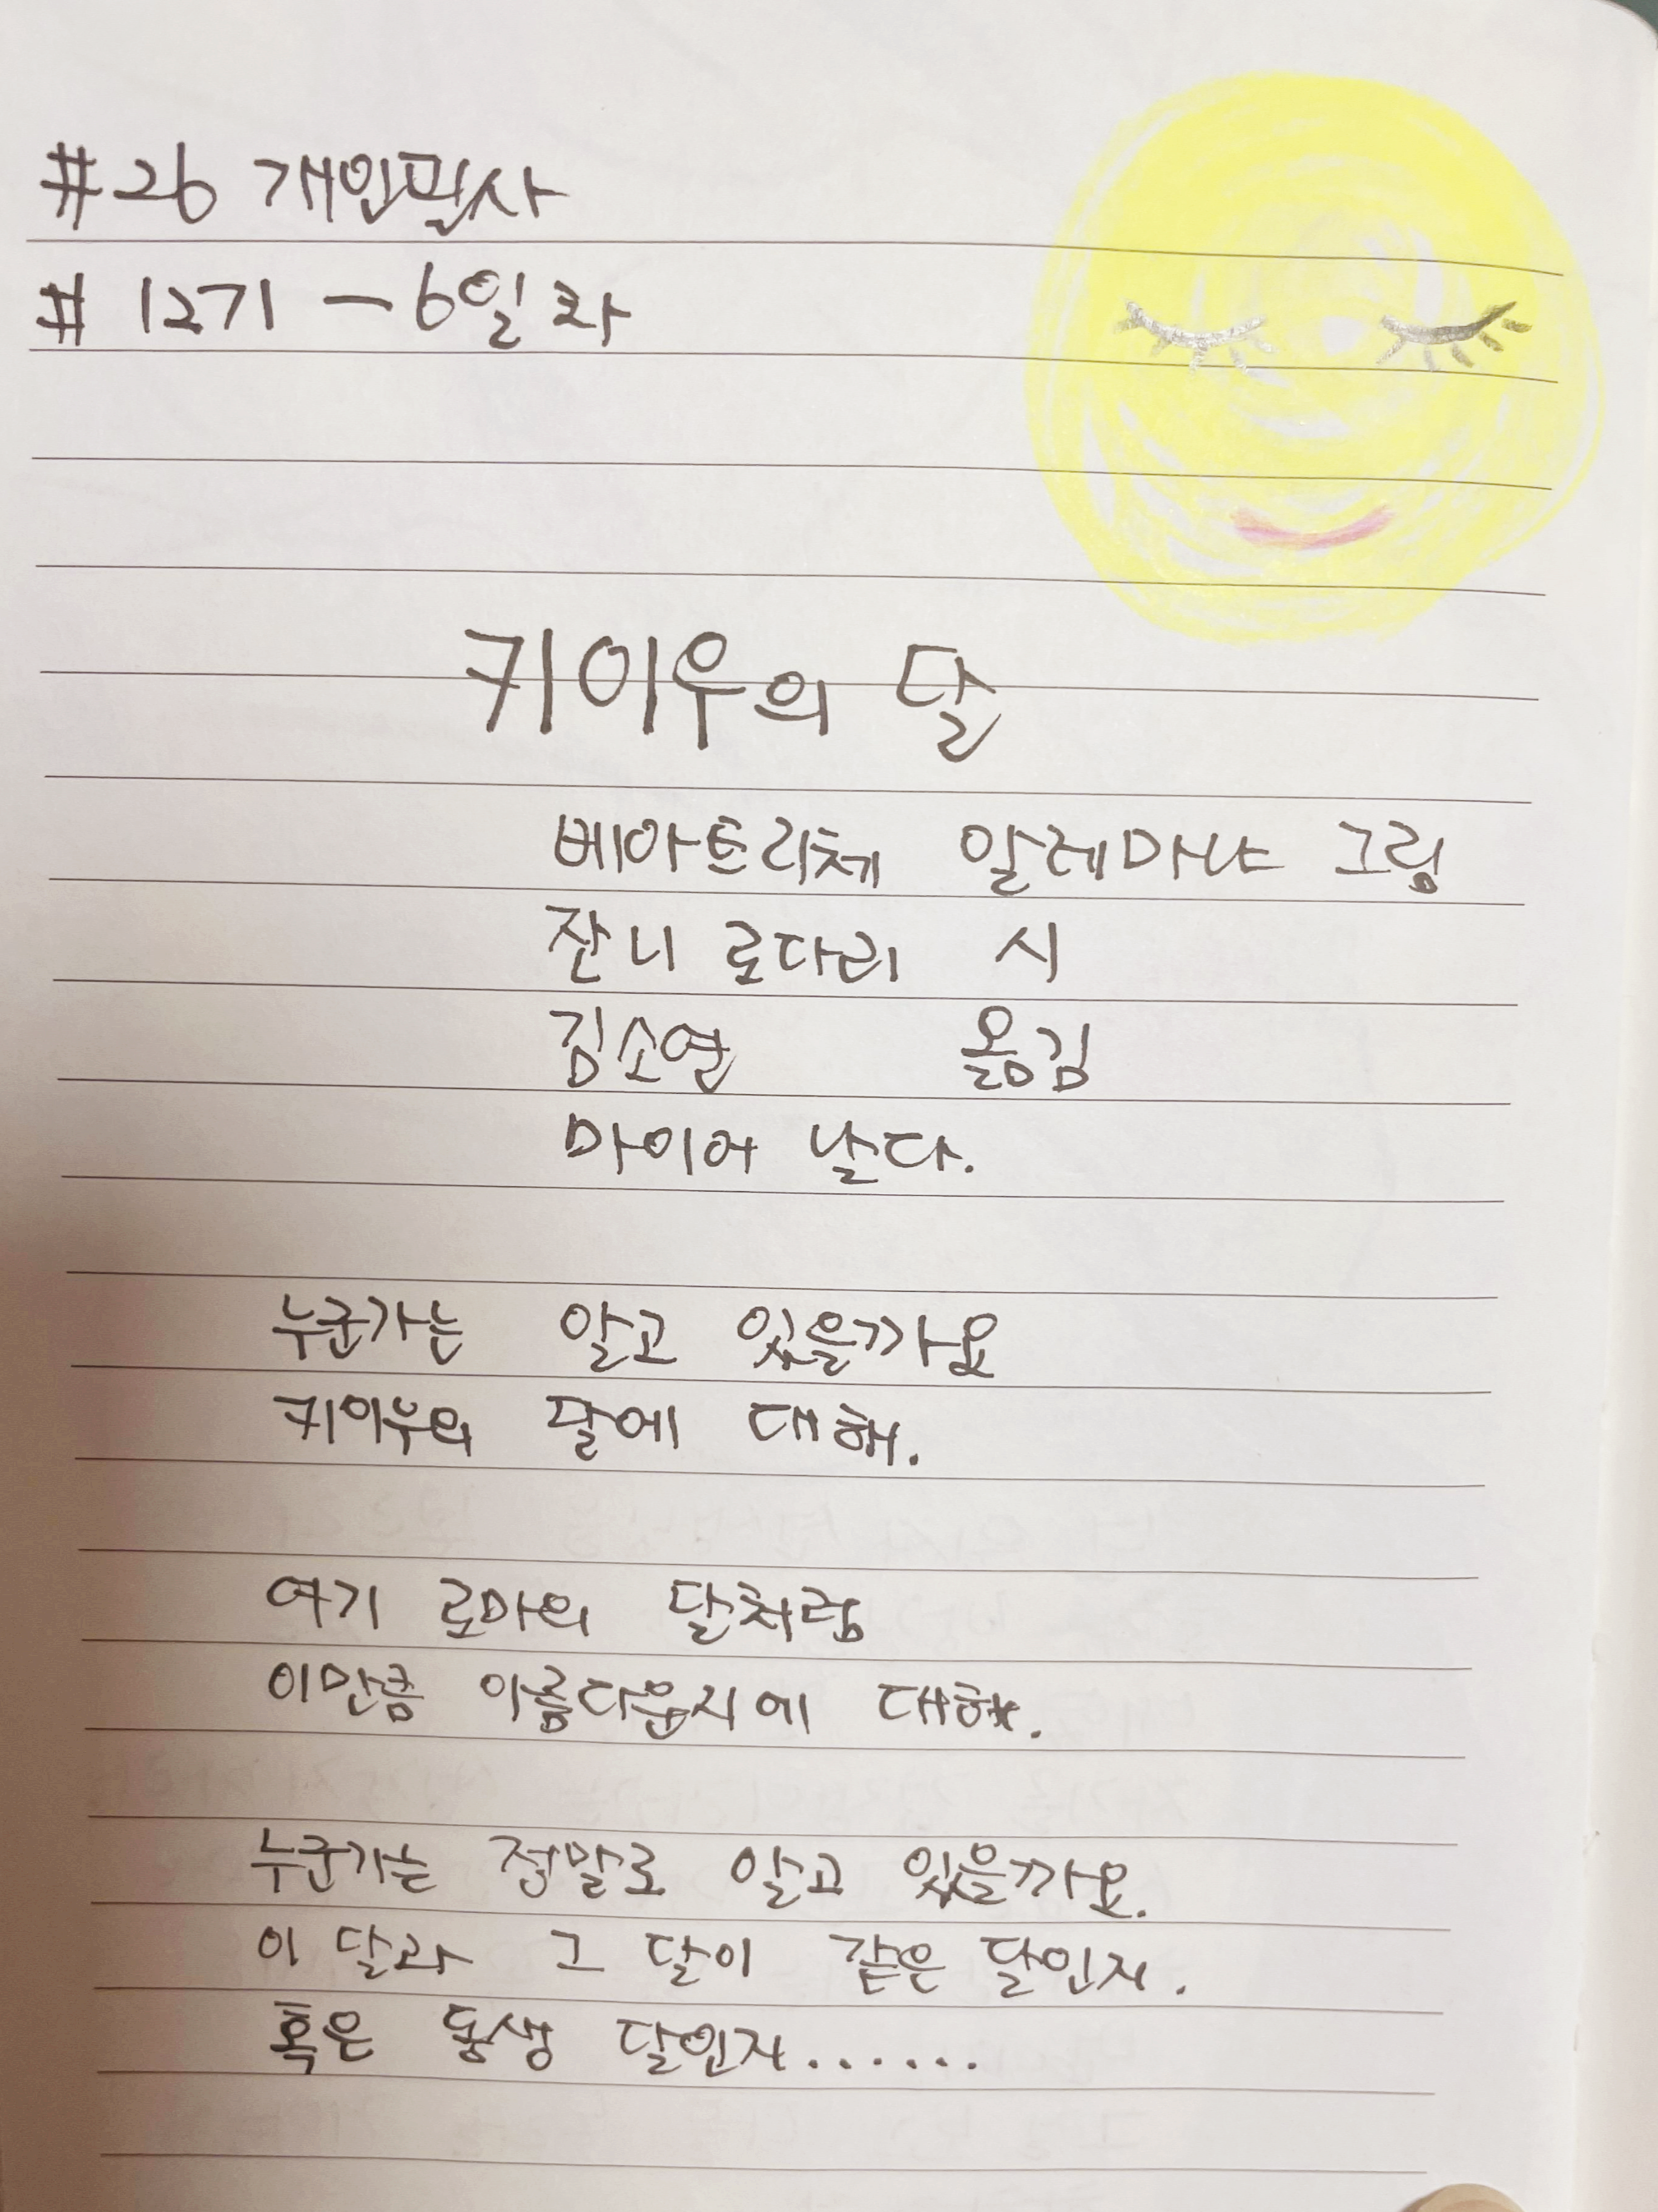 #26 개인필사
# 12기 - 6일차
키이우의 달
베아트리체 알레마냐 그림
잔니 로다리 시
김소연 옮김
마이어 날다.
누군가는 알고 있을까요
키이우의 달에 대해.
여기 로마의 달처럼
이만큼 아름다운지에 대해.
누군가는 정말로 알고 있을까요.
이 달과 그 달이 같은 달인지.
혹은 동생 달인지.......